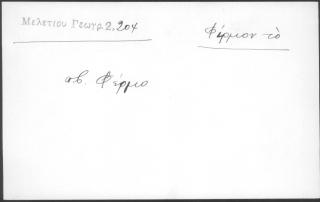 Μελετίου Γεωγρ 2, 204
Φέρμον τὸ
πβ. Φέρμο